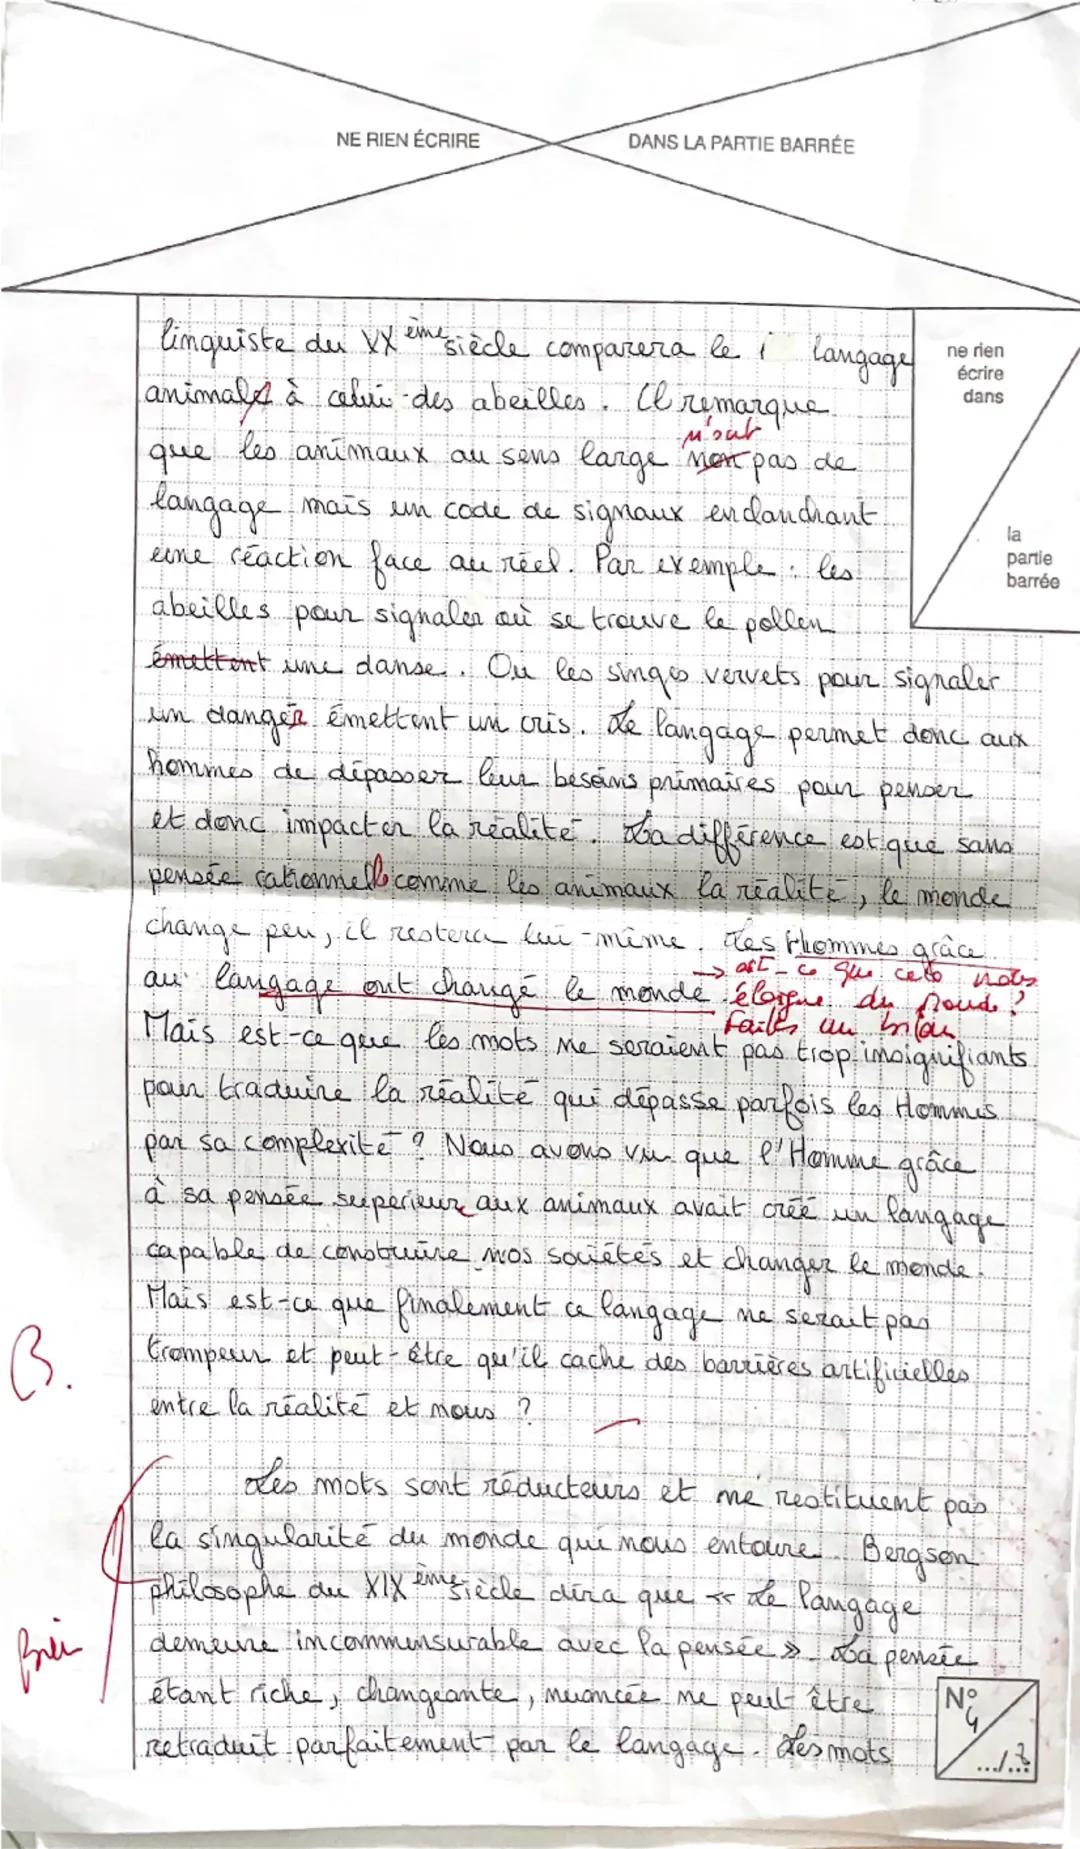 NE RIEN ÉCRIRE
DANS LA PARTIE BARRÉE
ne rien
écrire
dans
la
partie
barrée
linguiste du VXème siècle comparera le langage
animales à celui des abeilles. Il remarque
n'ont
que les animaux au sens large non pas de
langage mais un code de signaux enclanchant
une réaction face au réel. Par exemple : les
abeilles pour signaler où se trouve le pollen
émettent une danse. Ou les singes vervets pour signaler
un danger émettent un cris. Le langage permet donc aux
hommes de dépasser leur besoins primaires pour penser
et donc impacter la réalité. La différence est que sans
pensée rationnelle comme les animaux la réalité, le monde
change peu, il restera lui-même. Les Hommes grâce
→ est-ce que cela nous
au langage ont changé le monde
éloigne du monde ?
Faites un bilan
Mais est-ce que les mots ne seraient pas trop insignifiants
pour traduire la réalité qui dépasse parfois les Hommes
par sa complexité ? Nous avons vu que l'Homme grâce
à sa pensée superieure aux animaux avait créé un langage
capable de construire nos sociétés et changer le monde.
Mais est-ce que finalement ce langage ne serait pas
trompeur et peut-être qu'il cache des barrières artificielles
B.
entre la réalité et nous ?
Les mots sont réducteurs et ne restituent pas
la singularité du monde qui nous entoure. Bergson
philosophe du XIXème siècle dira que « Le langage
Bien
demeure incommensurable avec la pensée ». La pensée
étant riche, changeante, nuancée ne peut être
retraduit parfaitement par le langage. Les mots
N°
4
.../...